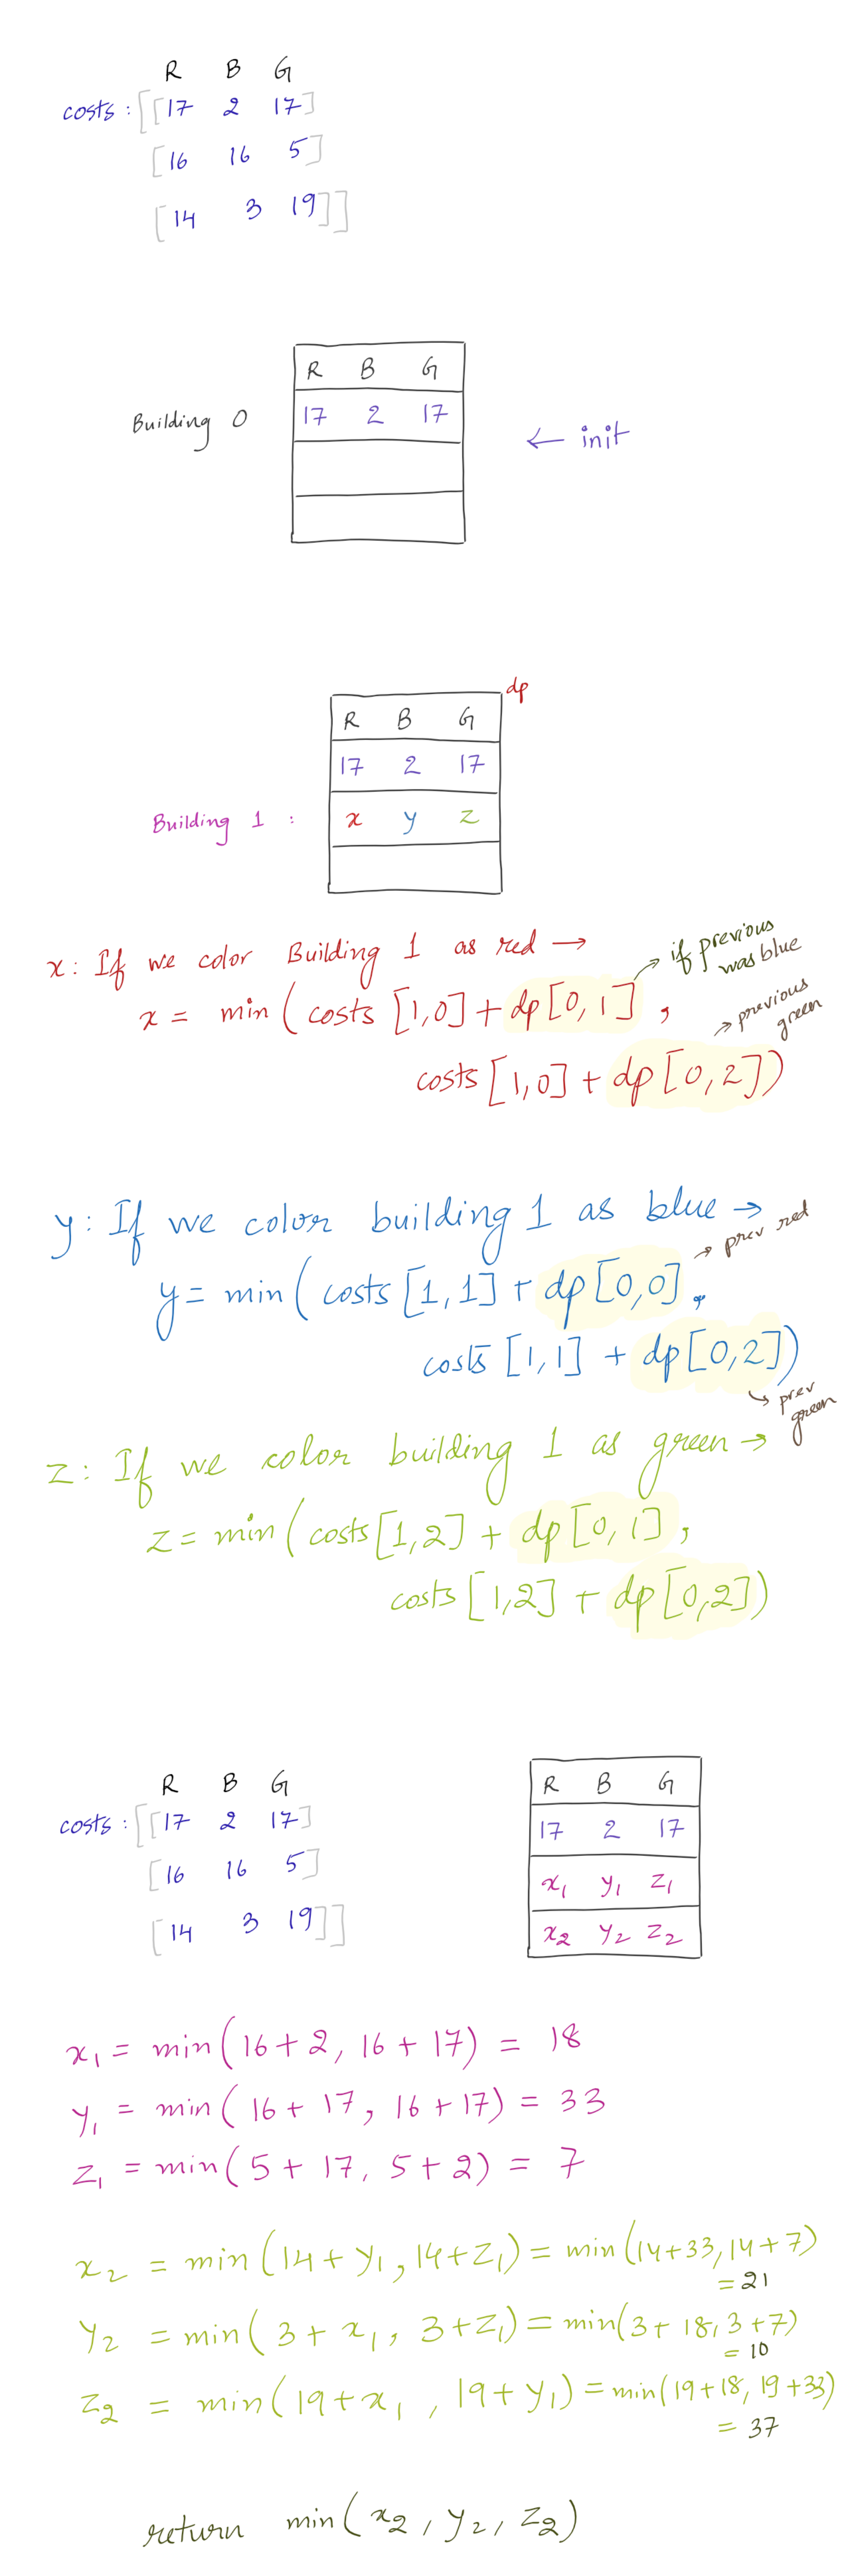 R B G
costs : [[17 2 17]
[16 16 5]
[14 3 19]]
R B G
Building 0 17 2 17 ← init
dp
R B G
17 2 17
Building 1 : x y z
x: If we color Building 1 as red →
→ if previous was blue
x = min ( costs [1,0] + dp[0,1] ,
→ previous green
costs [1,0] + dp[0,2])
y: If we color building 1 as blue →
→ prev red
y = min ( costs [1,1] + dp[0,0] ,
costs [1,1] + dp[0,2])
↳ prev green
z: If we color building 1 as green →
z = min ( costs [1,2] + dp[0,1] ,
costs [1,2] + dp[0,2])
R B G
costs : [[17 2 17]
[16 16 5]
[14 3 19]]
R B G
17 2 17
x₁ y₁ z₁
x₂ y₂ z₂
x₁ = min(16+2, 16+17) = 18
y₁ = min(16+17, 16+17) = 33
z₁ = min(5+17, 5+2) = 7
x₂ = min(14+y₁, 14+z₁) = min(14+33, 14+7)
= 21
y₂ = min(3+x₁, 3+z₁) = min(3+18, 3+7)
= 10
z₂ = min(19+x₁, 19+y₁) = min(19+18, 19+33)
= 37
return min(x₂, y₂, z₂)